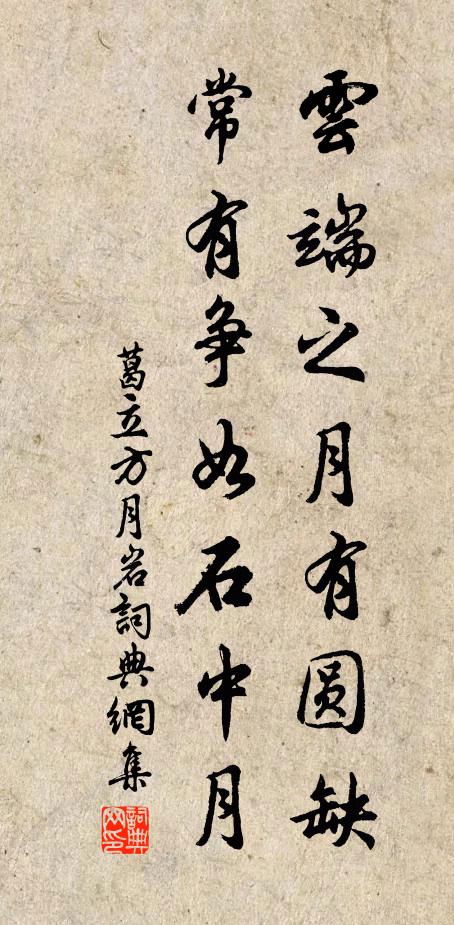 雲端之月有圓缺
常有争如石中月
葛立方月岩詞典網集
詞典網印